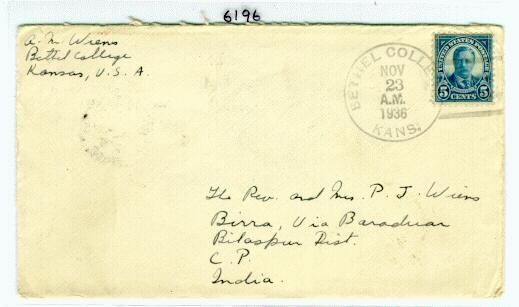 6196
A. M. Wiens
Bethel College
Kansas, U.S.A.
BETHEL COLLE
NOV
23
A.M.
1936
KANS.
UNITED STATES POSTAGE
5 CENTS 5
The Rev. and Mrs. P. J. Wiens
Birra, Via Baraduar
Bilaspur Dist.
C. P.
India.